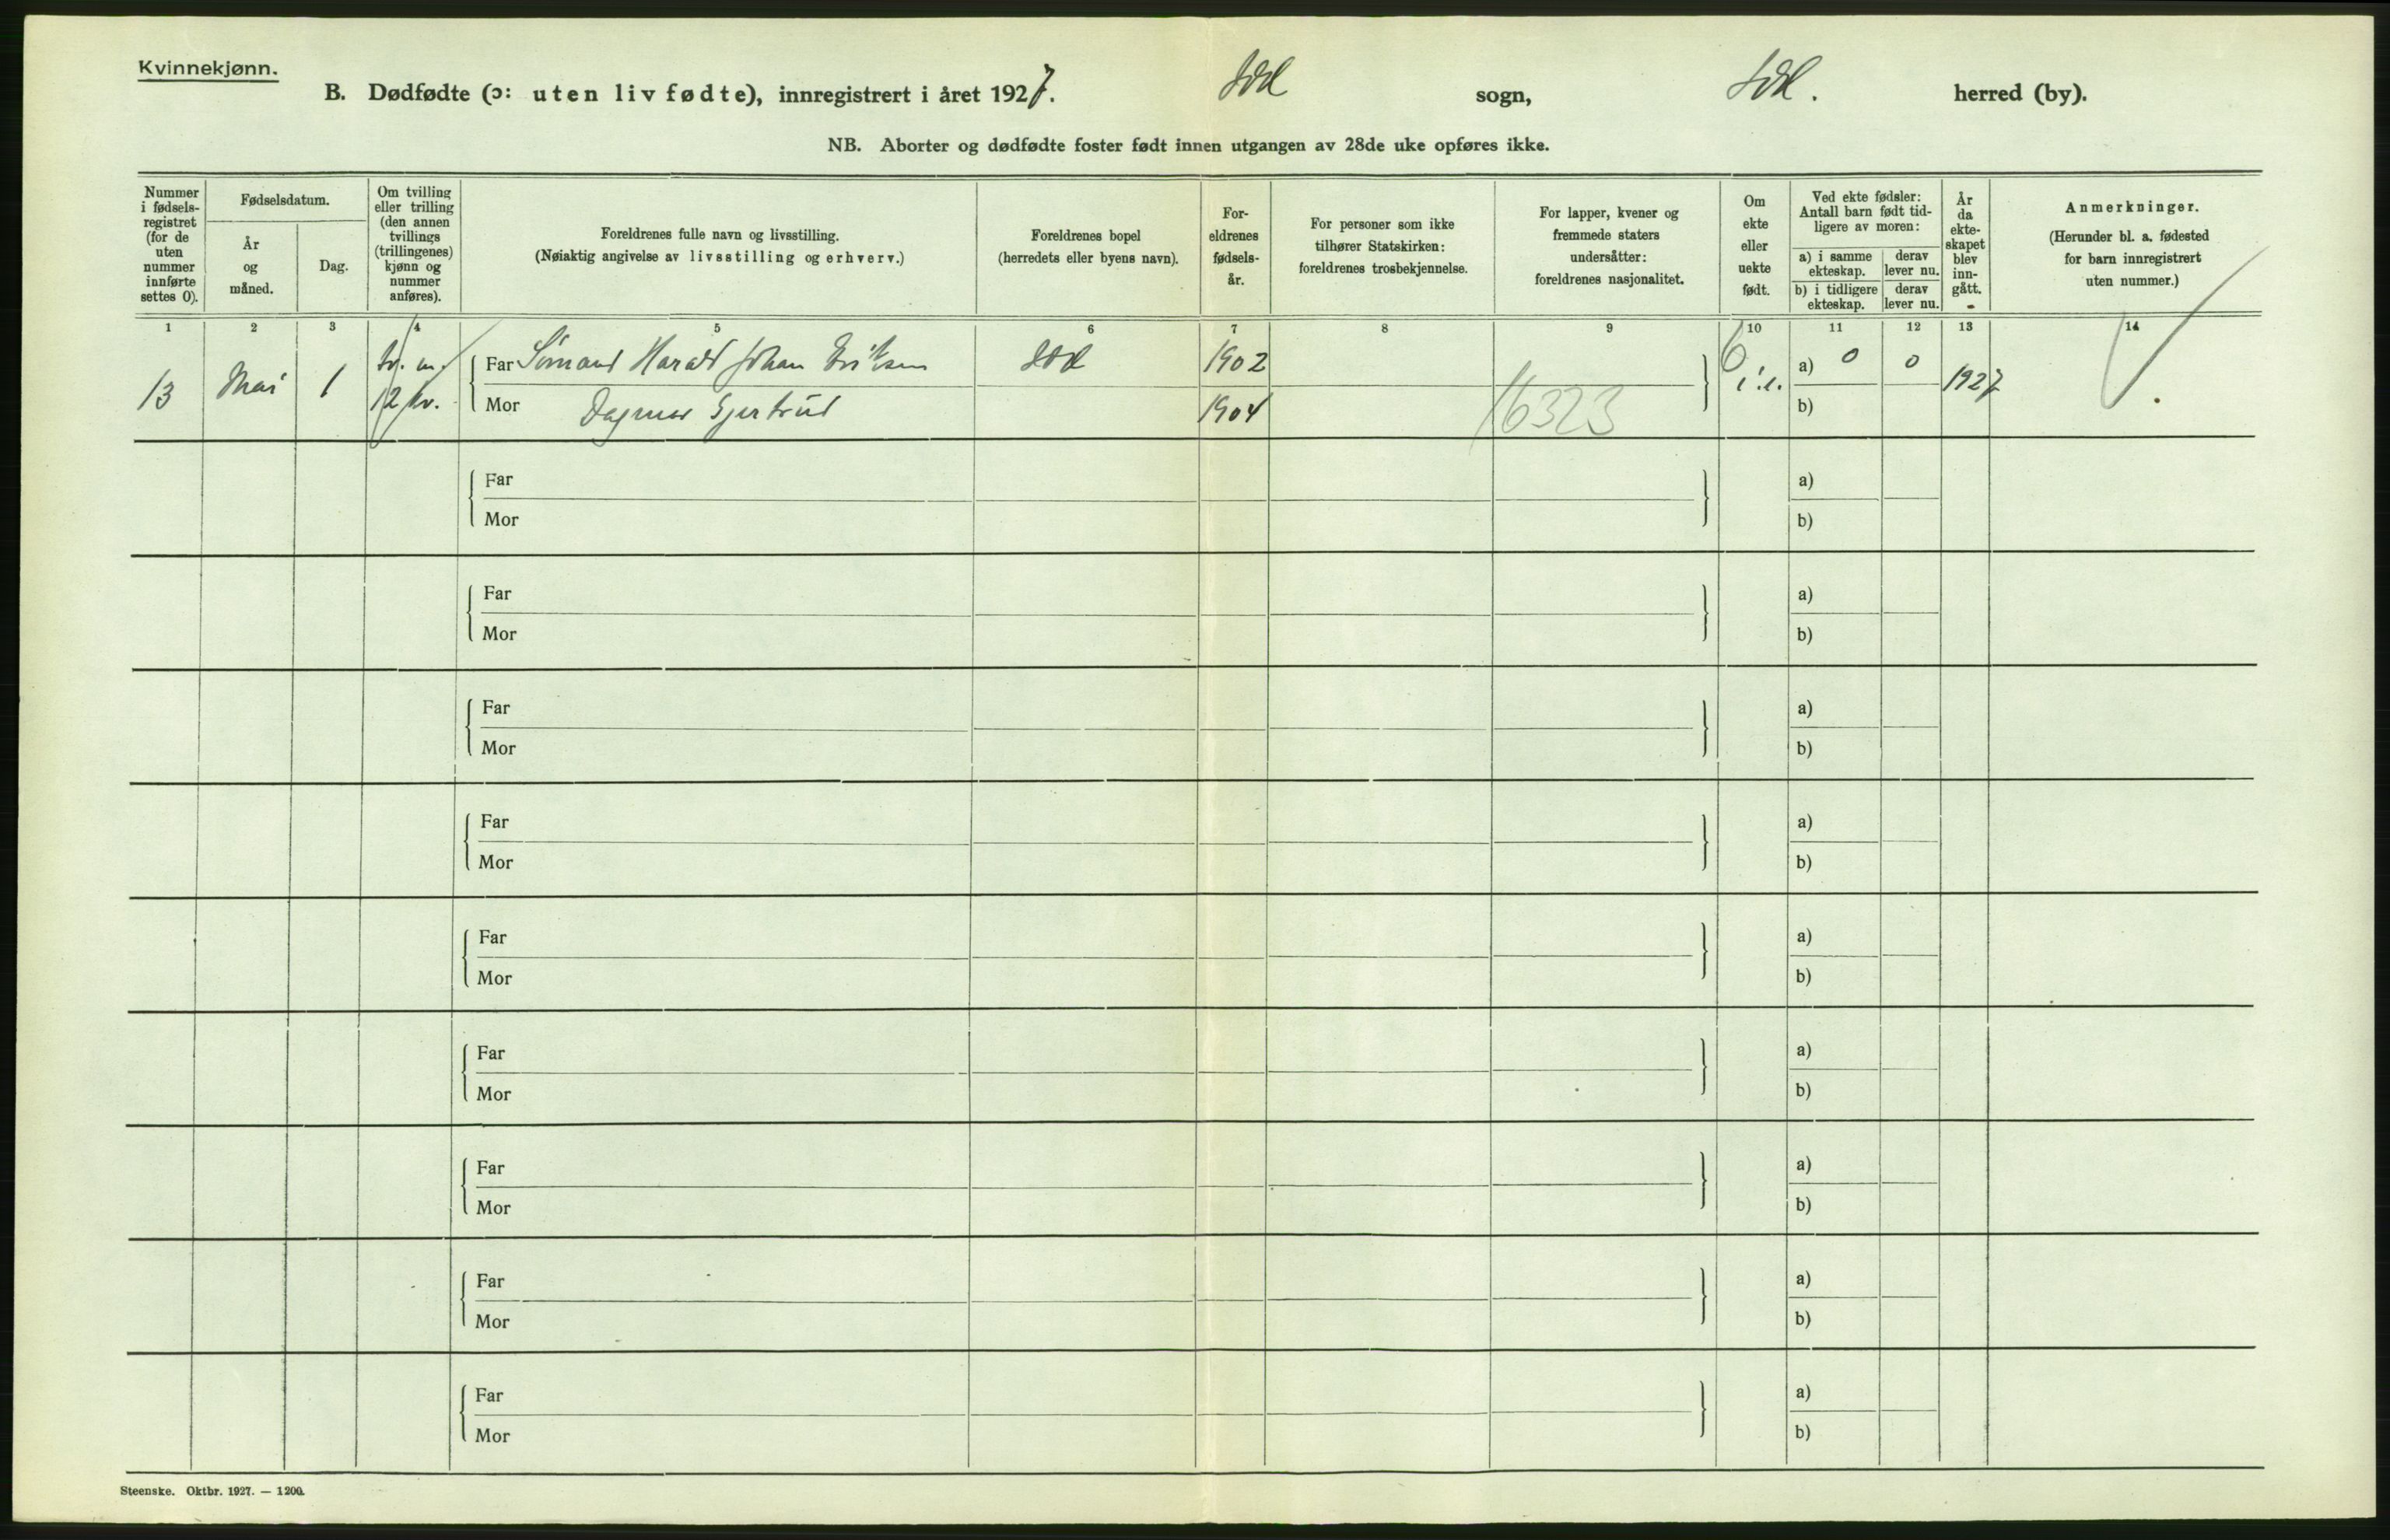 Kvinnekjønn.
B. Dødfødte (ɔ: uten liv fødte), innregistrert i året 1927. Idd sogn, Idd. herred (by).
NB. Aborter og dødfødte foster født innen utgangen av 28de uke opføres ikke.
Nummer i fødsels-registret (for de uten nummer innførte settes 0).
Fødselsdatum.
År og måned.
Dag.
Om tvilling eller trilling (den annen tvillings (trillingenes) kjønn og nummer anføres).
Foreldrenes fulle navn og livsstilling.
(Nøiaktig angivelse av livsstilling og erhverv.)
Foreldrenes bopel
(herredets eller byens navn).
For-eldrenes fødsels-år.
For personer som ikke tilhører Statskirken: foreldrenes trosbekjennelse.
For lapper, kvener og fremmede staters undersåtter: foreldrenes nasjonalitet.
Om ekte eller uekte født.
Ved ekte fødsler: Antall barn født tid-ligere av moren:
a) i samme ekteskap.
derav lever nu.
b) i tidligere ekteskap.
derav lever nu.
År da ekte-skapet blev inn-gått.
Anmerkninger.
(Herunder bl. a. fødested for barn innregistrert uten nummer.)
1 2 3 4 5 6 7 8 9 10 11 12 13 14
13 Mai 1 tv. m. 12 kv.
Far Sømand Harald Johan Eriksen Idd 1902 6 a) 0 0
Mor Dagmar Gjertrud 1904 16323 b) 1927
Far a)
Mor b)
Far a)
Mor b)
Far a)
Mor b)
Far a)
Mor b)
Far a)
Mor b)
Far a)
Mor b)
Far a)
Mor b)
Far a)
Mor b)
Far a)
Mor b)
Steenske. Oktbr. 1927. — 1200.